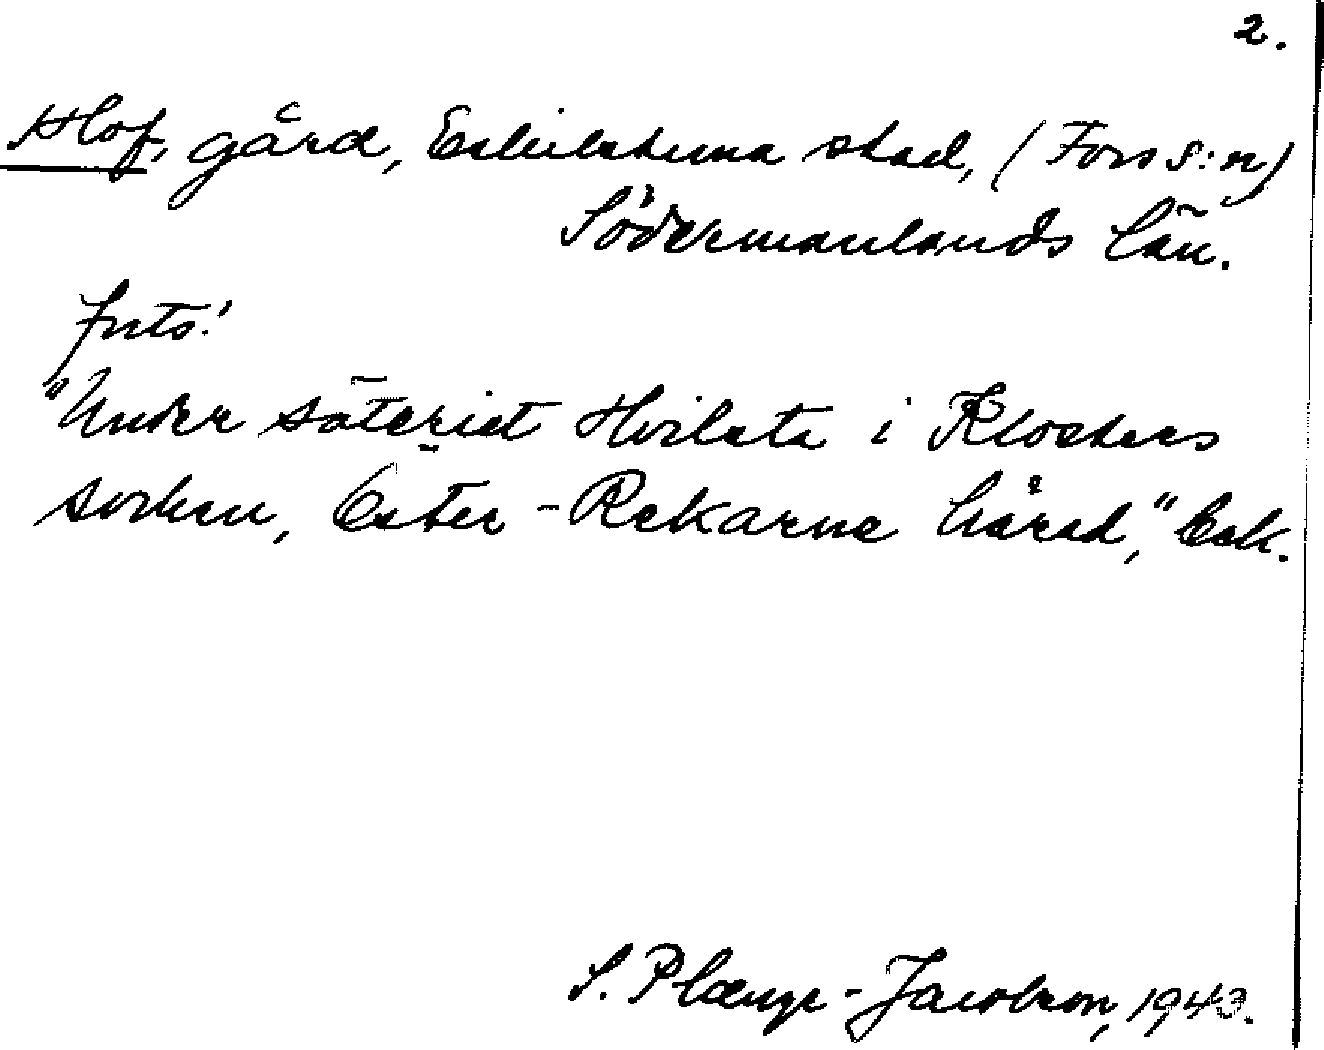 2.
Hof, gård, Eskilstuna stad, (Fors s:n)
Södermanlands län.
forts.
"Under säteriet Hvilsta i Klosters
socken, Öster-Rekarne härad," Esk.
S. Plænge-Jacobson, 1943.